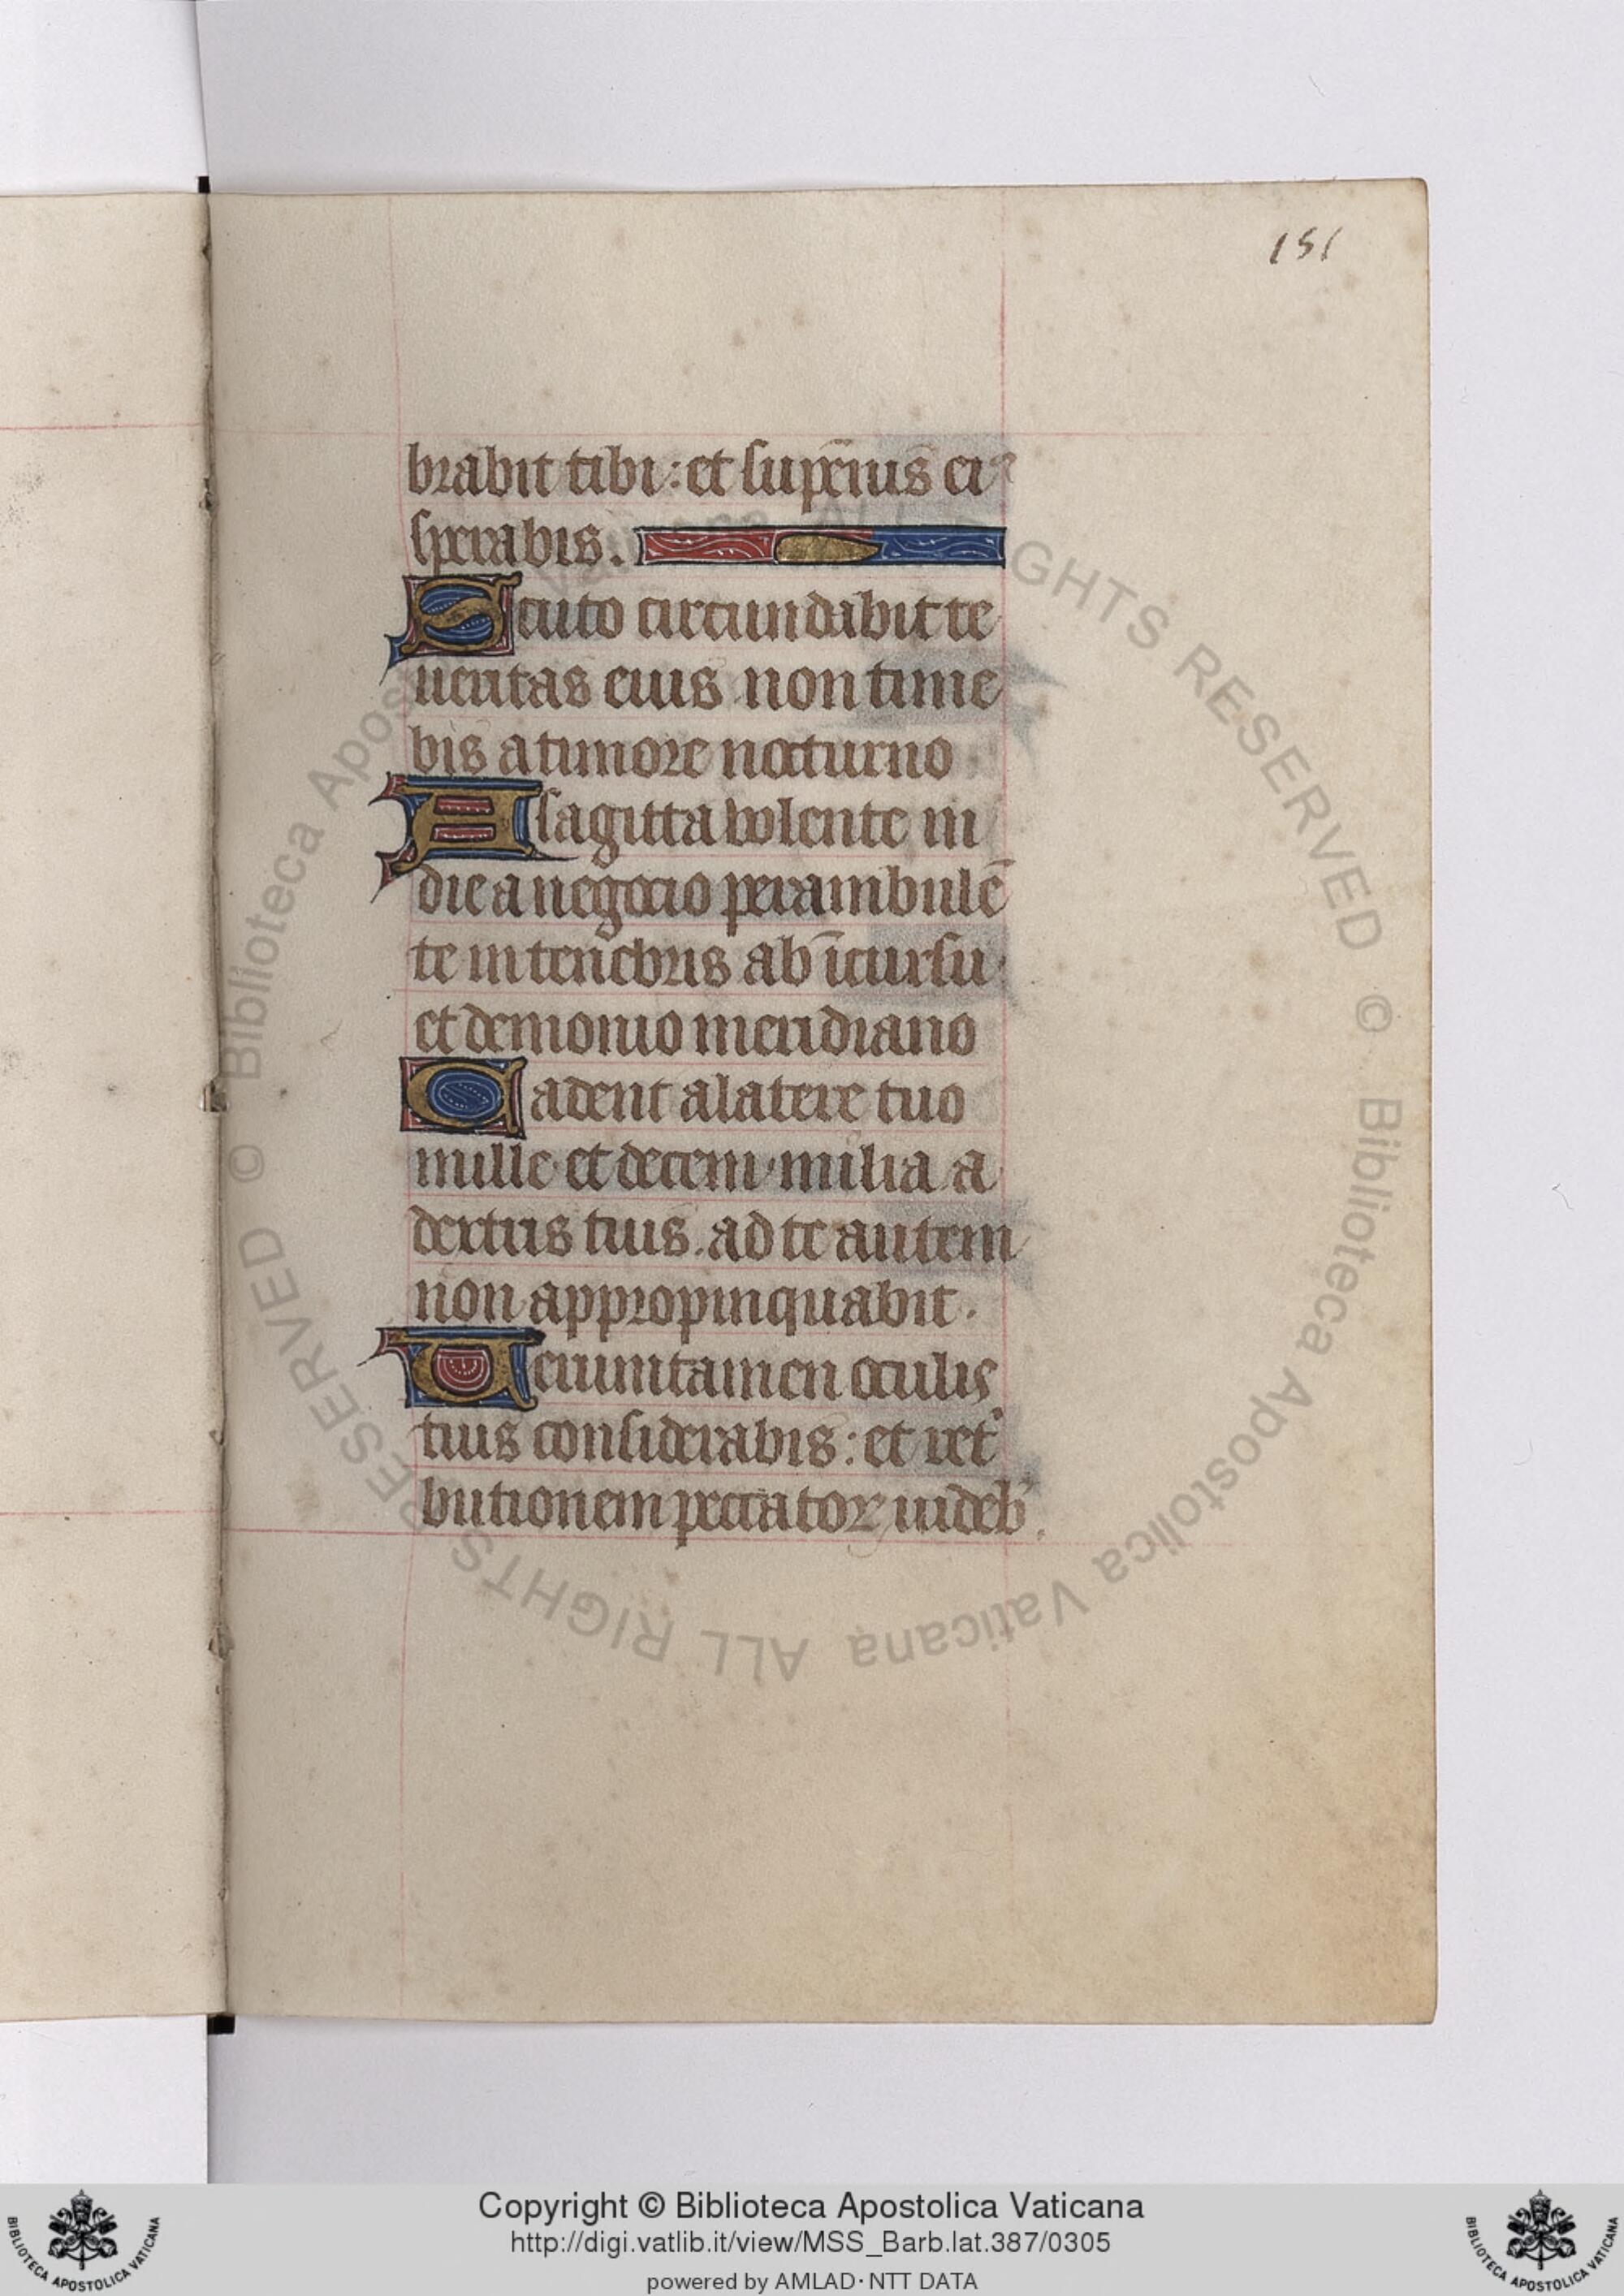 151
brabit tibi: et sup̄ēius ei
sperabis.
Scuto circundabit te
ueritas eius non time
bis a timore nocturno
A sagitta volente in
die a negocio perambulē
te in tenebris ab īcursu
et demonio meridiano
Cadent a latere tuo
mille et decem milia a
dextris tuis. ad te autem
non appropinquabit.
Verumtamen oculis
tuis considerabis: et ret
butionem peccatoꝝ uideb
© Biblioteca Apostolica Vaticana ALL RIGHTS RESERVED © Biblioteca Apostolica Vaticana ALL RIGHTS RESERVED
Copyright © Biblioteca Apostolica Vaticana
http://digi.vatlib.it/view/MSS_Barb.lat.387/0305
powered by AMLAD·NTT DATA
BIBLIOTECA APOSTOLICA VATICANA
BIBLIOTECA APOSTOLICA VATICANA